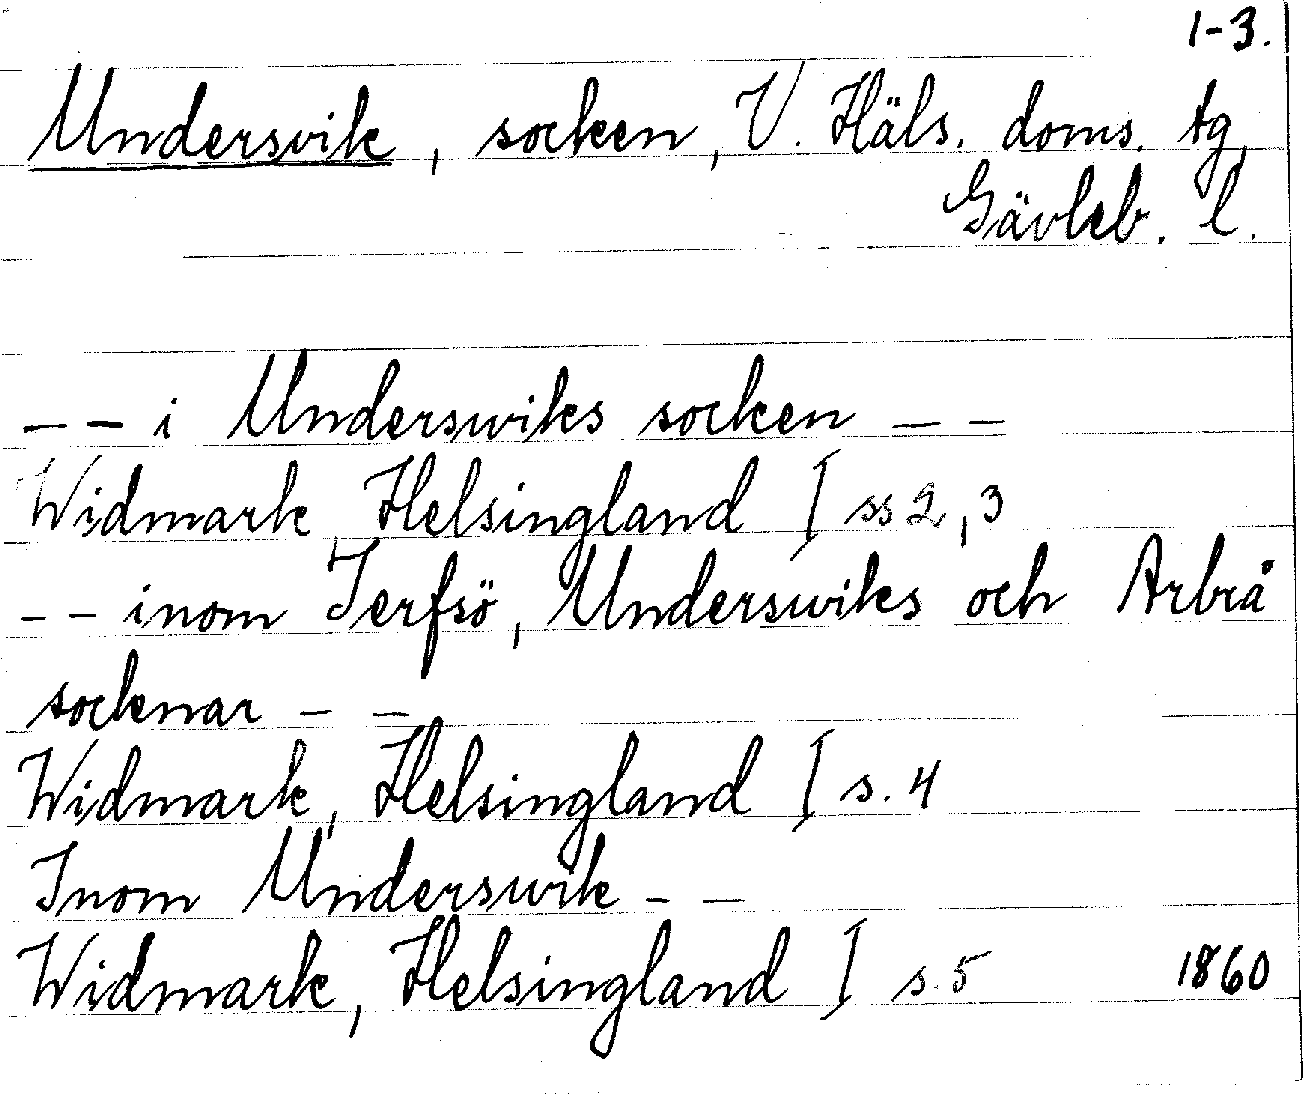 1-3.
Undersvik, socken, V. Häls. doms. tg,
Gävleb. l.
– – i Underswiks socken – –
Widmark, Helsingland I ss 2, 3
– – inom Jerfsö, Underswiks och Arbrå
socknar – –
Widmark, Helsingland I s. 4
Inom Underswik – –
Widmark, Helsingland I s. 5 1860